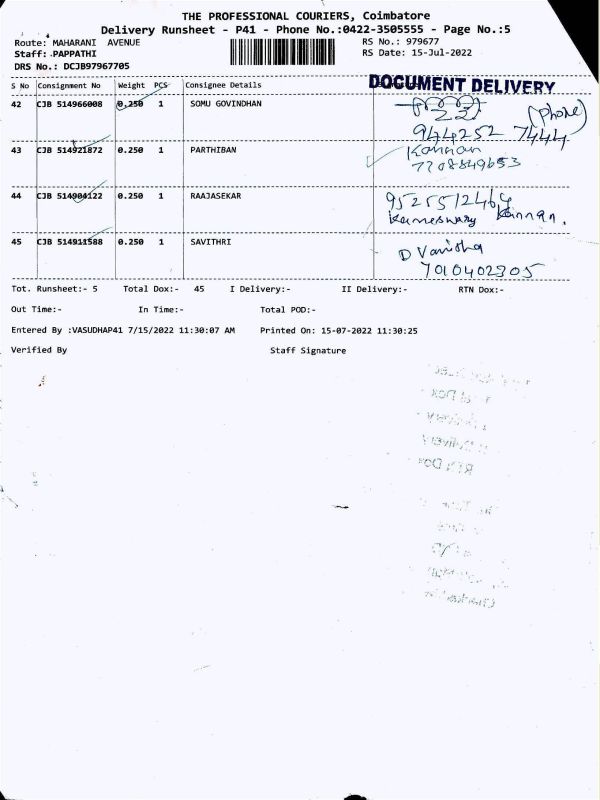 THE PROFESSIONAL COURIERS, Coimbatore
Delivery Runsheet - P41 - Phone No.:0422-3505555 - Page No.:5
Route: MAHARANI AVENUE RS No.: 979677
Staff: PAPPATHI RS Date: 15-Jul-2022
DRS No.: DCJB97967705
DOCUMENT DELIVERY
S No Consignment No Weight PCS Consignee Details
42 CJB 514966008 0.250 1 SOMU GOVINDHAN
(Phone)
944252 7444
43 CJB 514921872 0.250 1 PARTHIBAN Kannan
7708849653
44 CJB 514904122 0.250 1 RAAJASEKAR 9525512464
Kameswary Kannan.
45 CJB 514911588 0.250 1 SAVITHRI D Vanisha
7010402305
Tot. Runsheet:- 5 Total Dox:- 45 I Delivery:- II Delivery:- RTN Dox:-
Out Time:- In Time:- Total POD:-
Entered By :VASUDHAP41 7/15/2022 11:30:07 AM Printed On: 15-07-2022 11:30:25
Verified By Staff Signature